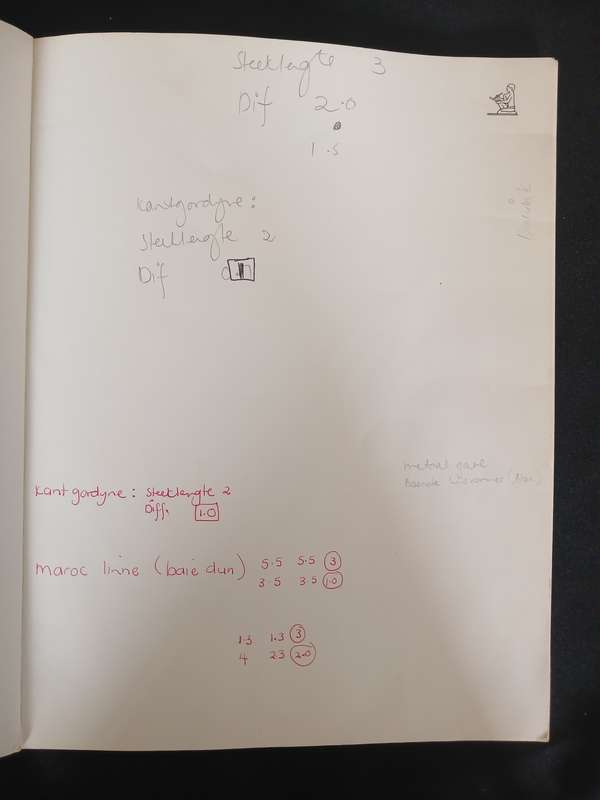 Steeklengte 3
Dif 2.0
1.5
Kantgordyne:
Steeklengte 2
Dif
Kantgordyne: Steeklengte 2
Diff. 1.0
maroc linne (baie dun) 5.5 5.5 3
3.5 3.5 1.0
1.3 1.3 3
4 2.3 2.0